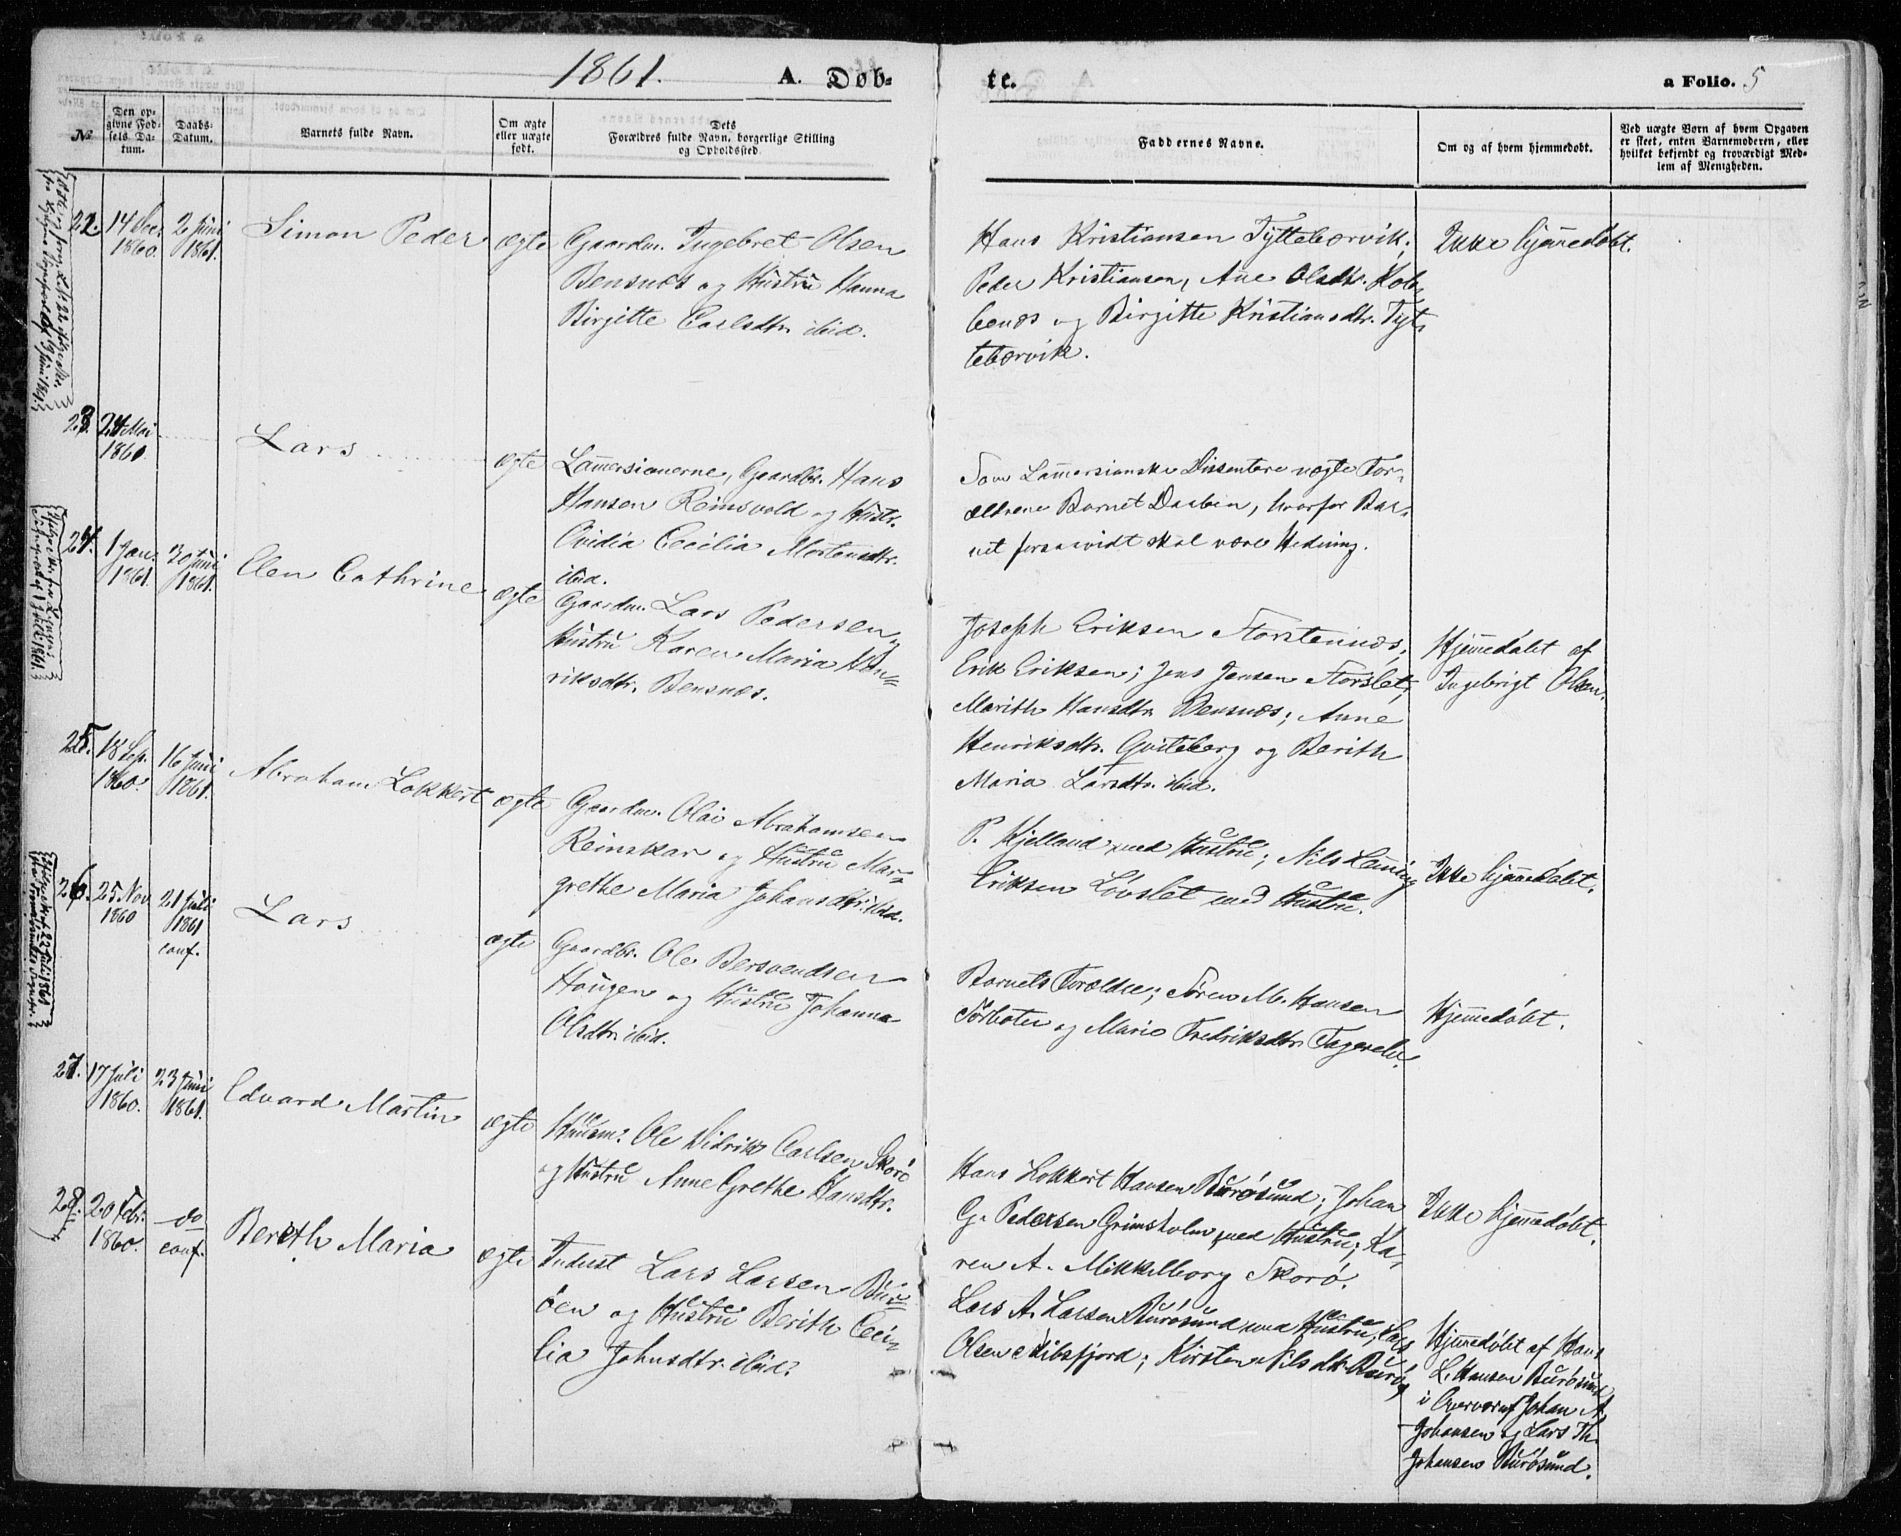 1861.
A. Døb-
te.
a Folio. 5
№
Den op-
givne Fød-
sels Da-
tum.
Daabs-
Datum.
Barnets fulde Navn.
Om ægte
eller uægte
født.
Dets
Forældres fulde Navn, borgerlige Stilling
og Opholdssted.
Faddernes Navne.
Om og af hvem hjemmedøbt.
Ved uægte Børn af hvem Opgaven
er skeet, enten Barnemoderen, eller
hvilket bekjendt og troværdigt Med-
lem af Menigheden.
22.
14 Dec.
1860.
2 Juni
1861.
Simon Peder
ægte
Gaardm. Ingebret Olsen
Bensnæs og Hustru Hanna
Birgitte Carlsdtr. ibid.
Hans Kristiansen Tyttebærvik;
Peder Kristiansen, Ane Olsdtr. Kob-
benæs og Birgitte Kristiansdtr. Tyt-
tebærvik.
Ikke hjemmedøbt.
23.
24 Mai
1860.
Lars
ægte
Lammersianerne, Gaardbr. Hans
Hansen Reinsvold og Hustr.
Ovidia Cecilia Mortensdtr.
ibid.
Som Lammersianske Dissentere nægte For-
ældrene Barnet Daaben, hvorfor Bar-
net forsaavidt skal være Hedning.
24.
1 Jan.
1861.
30 Juni
1861.
Elen Cathrine
ægte
Gaardm. Lars Pedersen og
Hustru Karen Maria Hen-
riksdtr. Bensnæs.
Joseph Eriksen Storstennæs;
Erik Eriksen; Jens Jensen Storslet,
Marith Hansdtr. Bensnæs; Anne
Henriksdtr. Qviteberg og Berith
Maria Larsdtr. ibid.
Hjemmedøbt af
Ingebrigt Olsen.
25.
18 Sep.
1860.
16 Juni
1861.
Abraham Lokkert
ægte
Gaardm. Olai Abrahamsen
Reinskar og Hustru Mar-
grethe Maria Johansdtr. ibid.
P. Kjelland med Hustru; Nils Henning
Eriksen Løvslet med Hustru.
Ikke hjemmedøbt.
26.
25 Nov.
1860
21 Juli
1861
conf.
Lars
ægte
Gaardbr. Ole Bersvendsen
Haugen og Hustru Johanna
Olsdtr. ibid.
Barnets Forældre; Søren M. Hansen
og Marie Fredriksdtr.
Hjemmedøbt.
27.
17 Juli
1860.
23 Juni
1861.
Edvard Martin
ægte
Huusm. Ole Didrik Carlsen Skorø
og Hustru Anne Grethe Hansdtr.
Hans Lokkert Hansen Burøsund; Johan
G. Pedersen Grimsholm med Hustru; Ka-
ren A. Mikkelborg Skorø.
Ikke hjemmedøbt.
28.
20 Febr.
1860.
do
conf.
Berith Maria
ægte
Inderst Lars Larsen Bur-
øen og Hustru Berith Ceci-
lia Johnsdtr. ibid.
Lars A. Larsen Burøsund med Hustru; Lars
Olsen Skibsfjord; Kirsten Nilsdtr. Burø,
Hjemmedøbt af Hans
L. Hansen Burøsund
i Overvær af Johan A.
Johansen og Lars Th.
Johansen Burøsund.